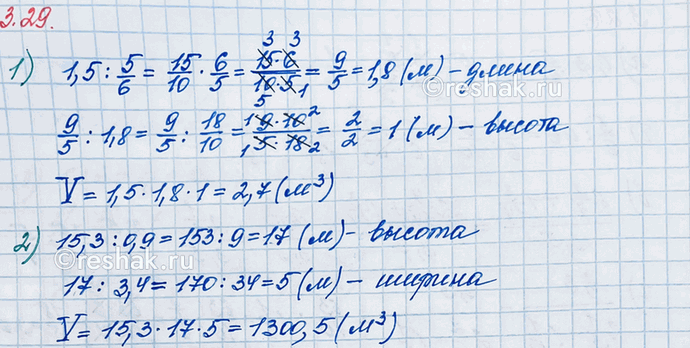 3.29.
1) 1,5 : 5/6 = 15/10 · 6/5 = 15·6/10·5 = 9/5 = 1,8 (м) – длина
3 3
5 1
9/5 : 1,8 = 9/5 : 18/10 = 9·10/5·18 = 2/2 = 1 (м) – высота
1 2
1 2
V = 1,5 · 1,8 · 1 = 2,7 (м³)
2) 15,3 : 0,9 = 153 : 9 = 17 (м) – высота
17 : 3,4 = 170 : 34 = 5 (м) – ширина
V = 15,3 · 17 · 5 = 1300,5 (м³)
reshak.ru
reshak.ru